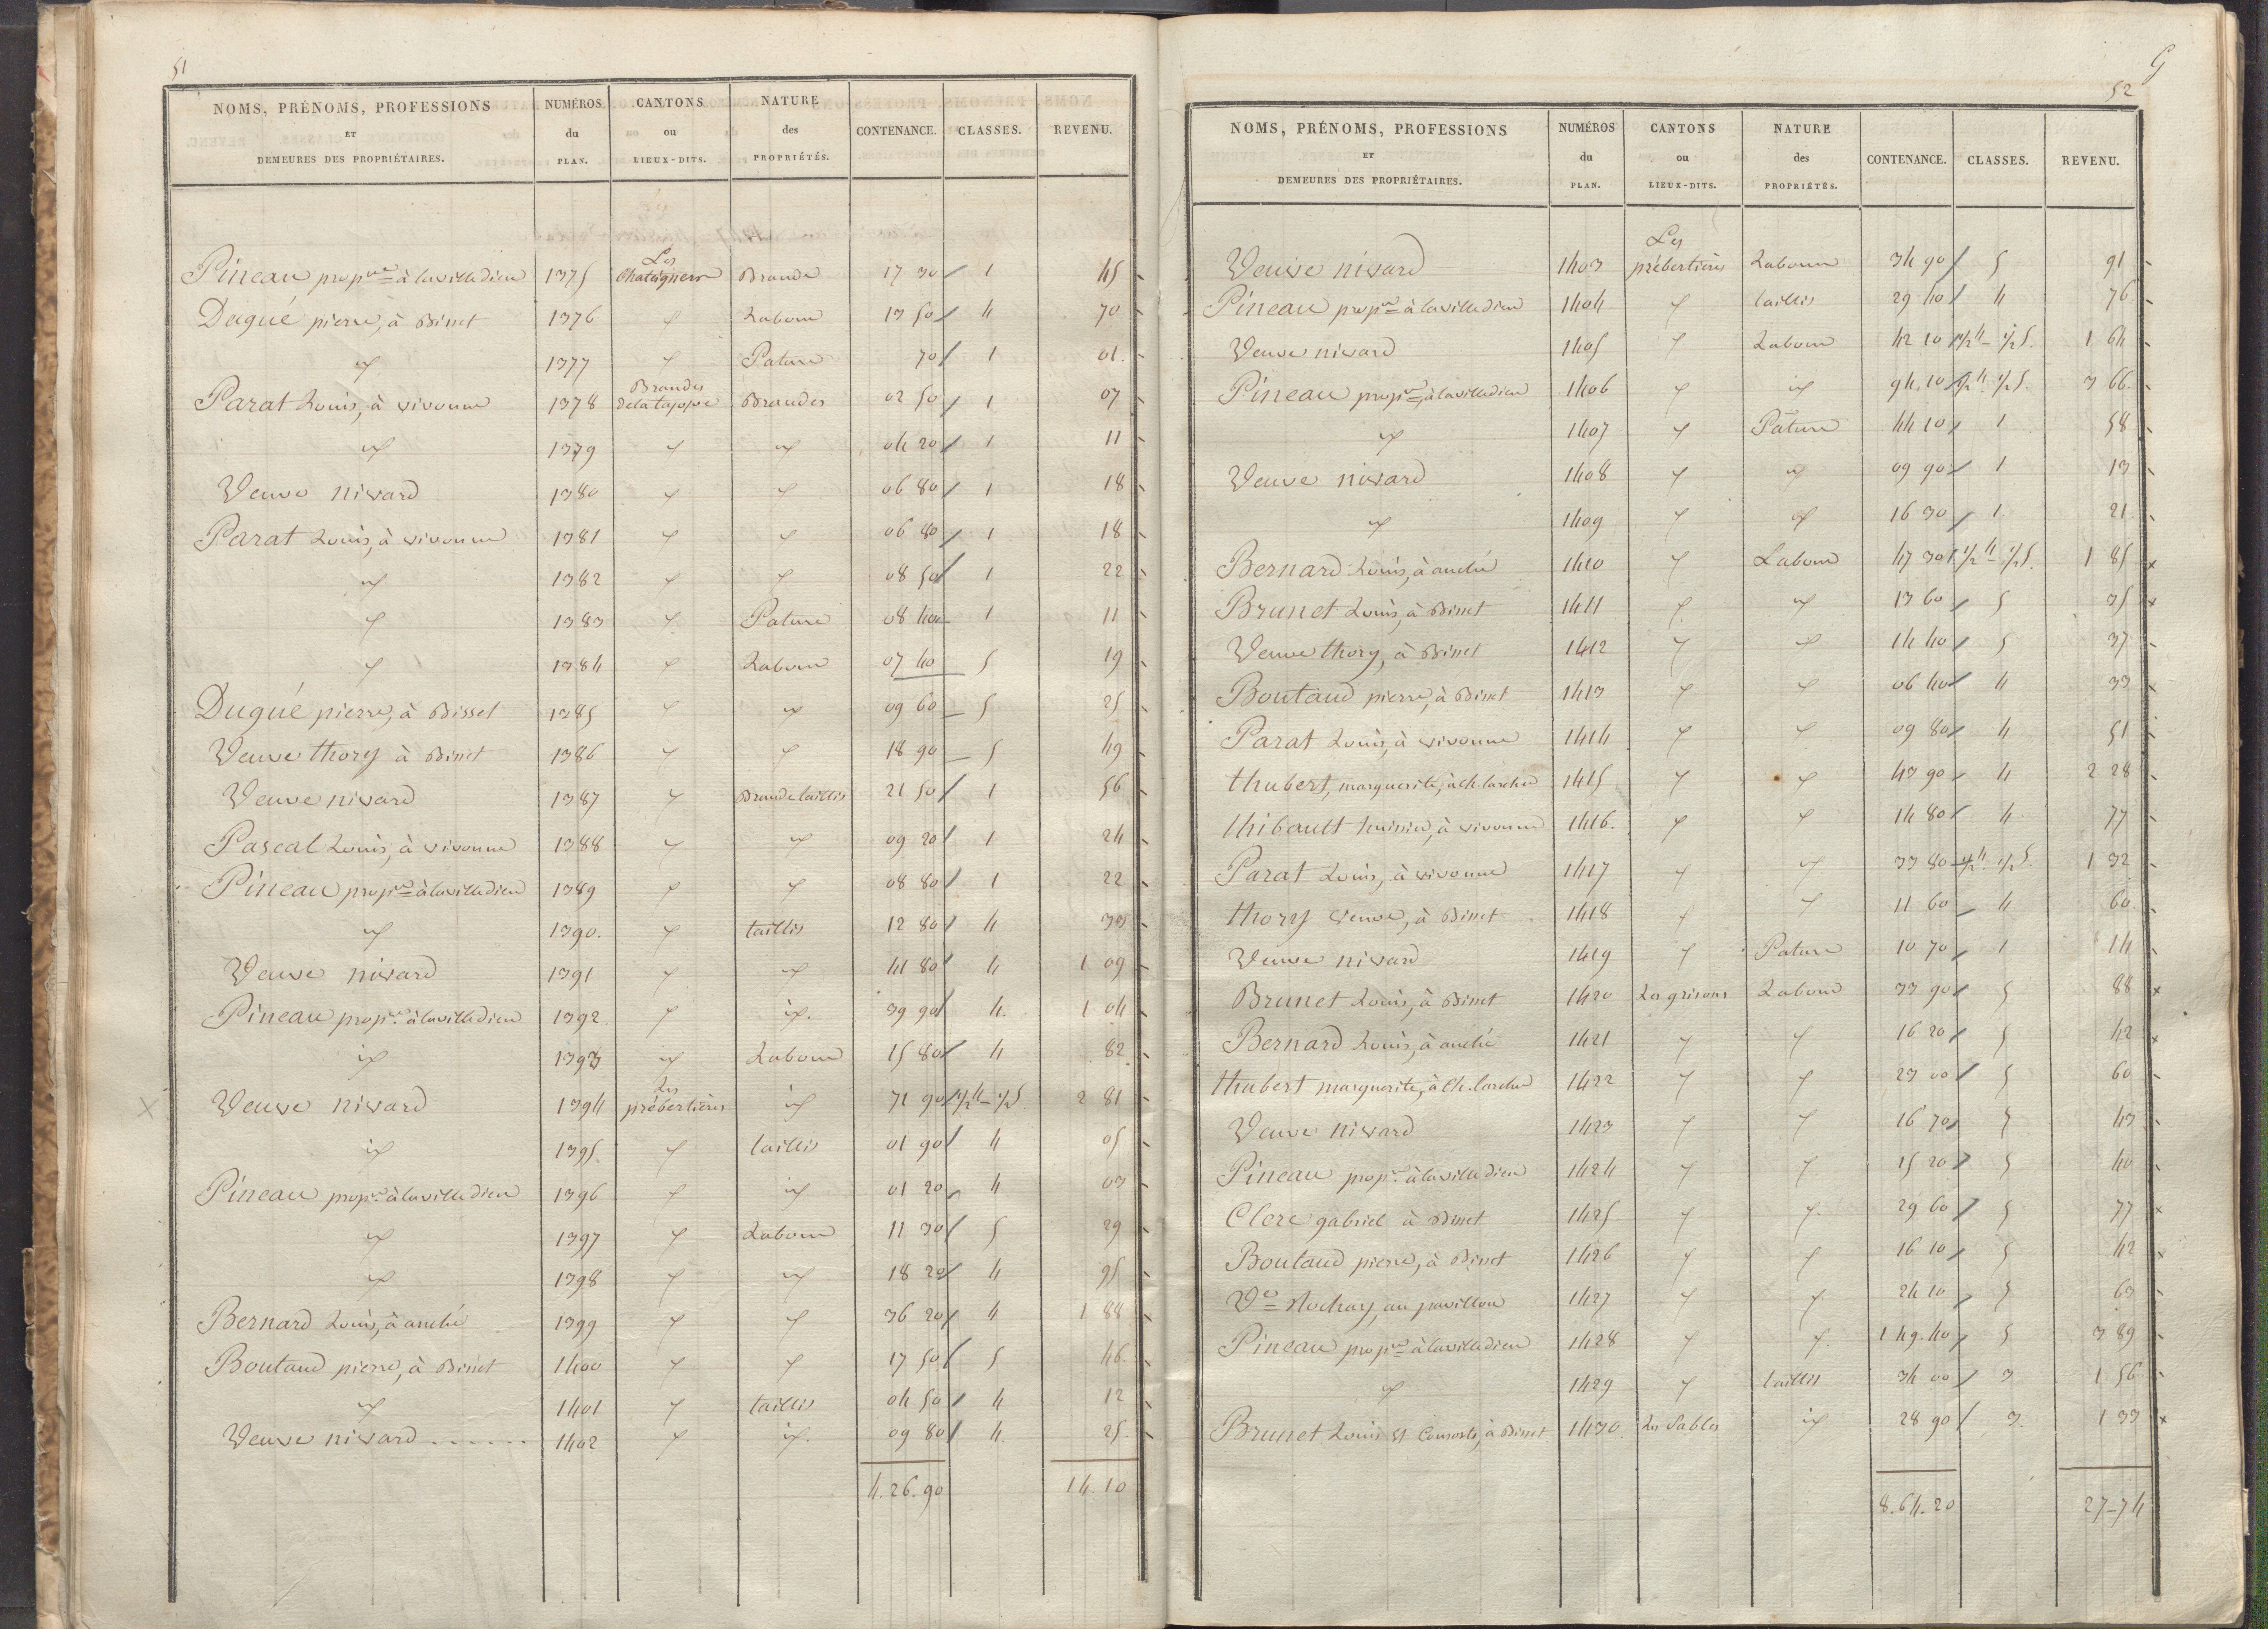 51
NOMS, PRÉNOMS, PROFESSIONS ET DEMEURES DES PROPRIÉTAIRES. NUMÉROS du PLAN. CANTONS ou LIEUX-DITS. NATURE des PROPRIÉTÉS. CONTENANCE. CLASSES. REVENU.
Pineau prop.re à lavilledieu 1375 Les Chataigners Brande 17 30 1 45
Dugué pierre, à Bisset 1376 " Labour 13 50 4 70
" 1377 " Pature 70 1 01.
Parat Louis, à vivonne 1378 Brandes de la tappe Brandes 02 50 1 07
" 1379 " " 04 20 1 11
Veuve nivard 1380 " " 06 80 1 18
Parat Louis, à vivonne 1381 " " 06 80 1 18
" 1382 " " 08 50 1 22
" 1383 " Pature 08 40 1 11
" 1384 " Labour 07 40 5 19
Dugué pierre, à Bisset 1385 " " 09 60 5 25
Veuve thory à Bisset 1386 " " 18 90 5 49
Veuve nivard 1387 " Brande taillis 21 50 1 56
Pascal Louis, à vivonne 1388 " " 09 20 1 24
Pineau prop.re à lavilledieu 1389 " " 08 80 1 22
" 1390. " taillis 12 80 4 33
Veuve nivard 1391 " " 41 80 4 1 09
Pineau prop.re à lavilledieu 1392 " " 39 90 4. 1 04
" 1393 " Labour 15 80 4 82
Veuve nivard 1394 Les prébertières " 71 90 1/2 4 - 1/2 5. 2 81
" 1395. " taillis 01 90 4 05
Pineau prop.re à lavilledieu 1396 " " 01 20 4 03
" 1397 " Labour 11 30 5 29
" 1398 " " 18 20 4 95
Bernard Louis, à anché 1399 " " 36 20 4 1 88
Boutaud pierre, à Bisset 1400 " " 17 50 5 46.
" 1401 " taillis 04 50 4 12
Veuve nivard ...... 1402 " " 09 80 4 25.
4. 26. 90 14. 10
52
NOMS, PRÉNOMS, PROFESSIONS ET DEMEURES DES PROPRIÉTAIRES. NUMÉROS du PLAN. CANTONS ou LIEUX-DITS. NATURE des PROPRIÉTÉS. CONTENANCE. CLASSES. REVENU.
Veuve nivard 1403 Les prébertières Labour 34 90 5 91
Pineau prop.re à lavilledieu 1404 " taillis 29 40 4 76
Veuve nivard 1405 " Labour 42 10 1/2 4 - 1/2 5. 1 64
Pineau prop.re à lavilledieu 1406 " " 94. 10 1/2 4 1/2 5. 3 66.
" 1407 " Pature 44 10 1 58
Veuve nivard 1408 " " 09 90 1 13
" 1409 " " 16 30 1. 21
Bernard Louis, à anché 1410 " Labour 47 30 1/2 4 - 1/2 5. 1 85
Brunet Louis, à Bisset 1411 " " 13 60 5 35
Veuve thory, à Bisset 1412 " " 14 40 5 37
Boutaud pierre, à Bisset 1413 " " 06 40 4 33
Parat Louis, à vivonne 1414 " " 09 80 4 51
thubert, marguerite, à Ch. larcher 1415 " " 43 90 4 2 28
thibault huissier, à vivonne 1416. " " 14 80 4 77
Parat Louis, à vivonne 1417 " " 33 80 1/2 4 1/2 5. 1 32
thory veuve, à Bisset 1418 " " 11 60 4 60.
Veuve nivard 1419 " Pature 10 70 1 14
Brunet Louis, à Bisset 1420 Les grisons Labour 33 90 5 88
Bernard Louis, à anché 1421 " " 16 20 5 42
thubert marguerite, à Ch. larcher 1422 " " 23 00 5 60
Veuve nivard 1423 " " 16 70 5 43
Pineau prop.re à lavilledieu 1424 " " 15 20 5 40
Clerc gabriel à Bisset 1425 " " 29 60 5 77
Boutaud pierre, à Bisset 1426 " " 16 10 5 42
V.e au pavillon 1427 " " 24 10 5 63
Pineau prop.re à lavilledieu 1428 " " 1 49. 40 5 3 89
" 1429 " taillis 34 00 3 1 56
Brunet Louis et Consorts, à Bisset 1430 Les Sables " 28 90 3. 1 33
8. 64. 20 27-74